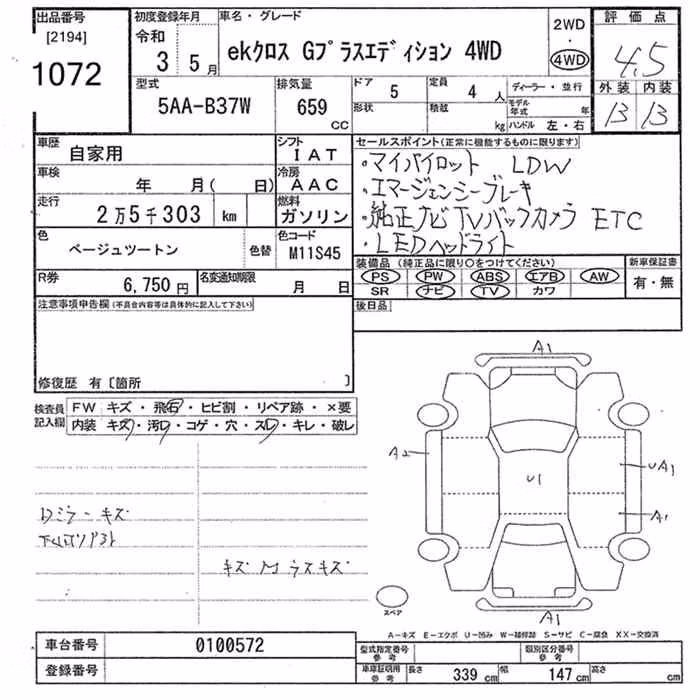 出品番号
[2194]
1072
初度登録年月
令和
3 5月
車名・グレード
ekクロス Gプラスエディション 4WD
2WD
・
4WD
評価点
4.5
外装 内装
B B
型式
5AA-B37W
排気量
659
CC
ドア
5
定員
4 人
形状
積載
kg
ディーラー・並行
モデル年式
年
ハンドル 左・右
車歴
自家用
シフト
IAT
車検
年 月( 日)
冷房
AAC
走行
2万5千303 km
燃料
ガソリン
色
ベージュツートン
色替
色コード
M11S45
R券
6,750円
名変通知期限
月 日
セールスポイント(正常に機能するものに限ります)
・マイパイロット LDW
・エマージェンシーブレーキ
・純正ナビTVバックカメラ ETC
・LEDヘッドライト
装備品(純正品に限り○をつけてください)
PS PW ABS エアB AW
SR ナビ TV カワ
新車保証書
有・無
後日品
注意事項申告欄(不具合内容等は具体的に記入して下さい)
修復歴 有〔箇所 〕
検査員記入欄
FW キズ・飛石・ヒビ割・リペア跡・×要
内装 キズ・汚レ・コゲ・穴・スレ・キレ・破レ
キズ
キズ
A1
A2
U1
UA1
A1
A1
スペア
A-キズ E-エクボ U-凹み W-補修跡 S-サビ C-腐食 XX-交換済
車台番号
0100572
登録番号
型式指定番号
参考
類別区分番号
参考
車庫証明用
参考
長さ 339 cm
幅 147 cm
高さ cm